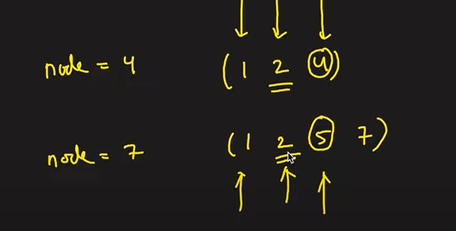 node = 4 (1 2 4)
node = 7 (1 2 5 7)